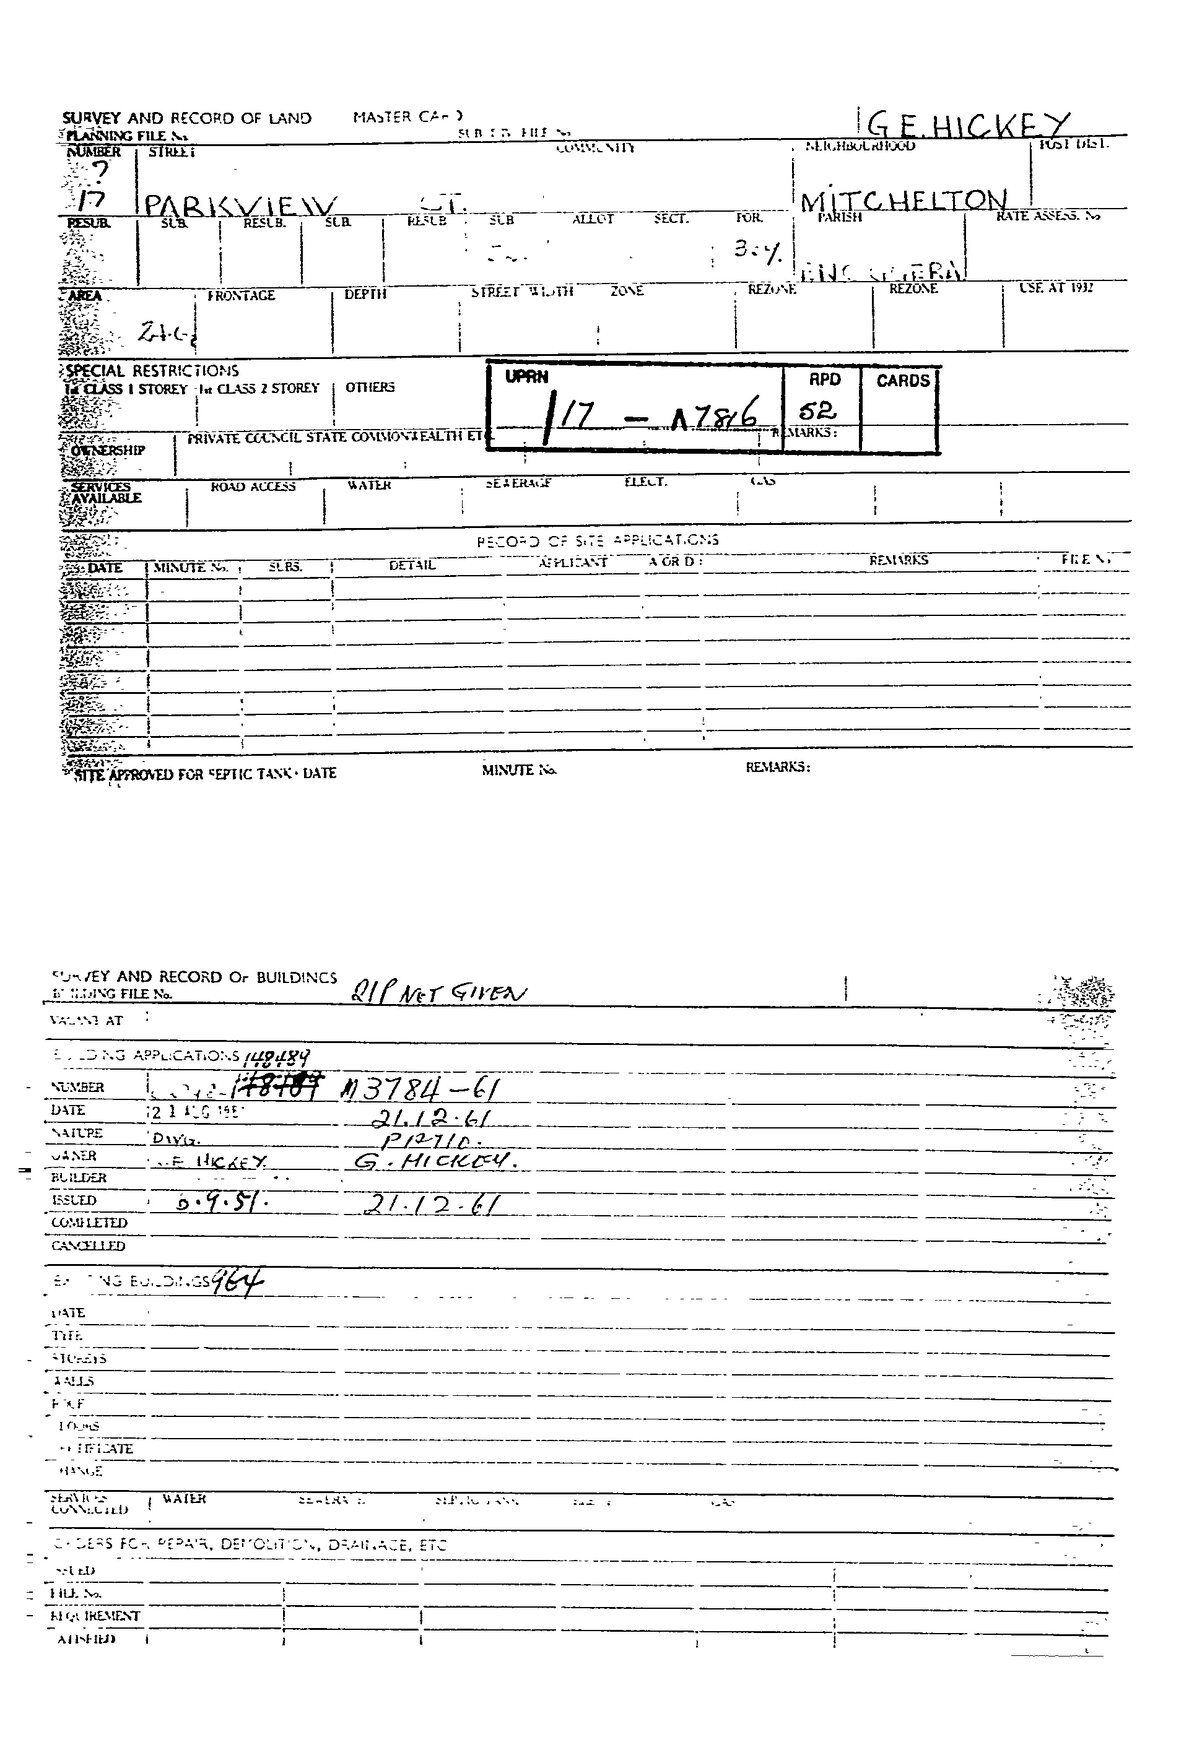 SURVEY AND RECORD OF LAND MASTER CARD
G.E. HICKEY
PLANNING FILE No. SUB. FILE No
NUMBER STREET COMMUNITY NEIGHBOURHOOD POST DIST.
?
17 PARKVIEW ST. MITCHELTON
RESUB. SUB. RESUB. SUB. RESUB SUB ALLOT SECT. POR. PARISH RATE ASSESS. No
ENOGGERA
AREA FRONTAGE DEPTH STREET WIDTH ZONE REZONE REZONE USE AT 1932
SPECIAL RESTRICTIONS
1st CLASS 1 STOREY 1st CLASS 2 STOREY OTHERS
UPRN RPD CARDS
/17 — A7816 52
OWNERSHIP PRIVATE COUNCIL STATE COMMONWEALTH ETC REMARKS:
SERVICES AVAILABLE ROAD ACCESS WATER SEWERAGE ELECT. GAS
RECORD OF SITE APPLICATIONS
DATE MINUTE No. SUBS. DETAIL APPLICANT A OR D: REMARKS FILE No
SITE APPROVED FOR SEPTIC TANK · DATE MINUTE No. REMARKS:
SURVEY AND RECORD OF BUILDINGS
BUILDING FILE No. R/P NOT GIVEN
VACANT AT
BUILDING APPLICATIONS 148489
NUMBER A3784-61
DATE 21.12.61
NATURE Dwg. PATIO.
OWNER G.E HICKEY G. HICKEY.
BUILDER
ISSUED 6.9.51. 21.12.61
COMPLETED
CANCELLED
EXISTING BUILDINGS 964
DATE
TYPE
STOREYS
WALLS
ROOF
FLOORS
CERTIFICATE
CHANGE
SERVICES CONNECTED WATER SEWERAGE SEPTIC TANK ELECT GAS
ORDERS FOR REPAIR, DEMOLITION, DRAINAGE, ETC
ISSUED
FILE No.
REQUIREMENT
SATISFIED